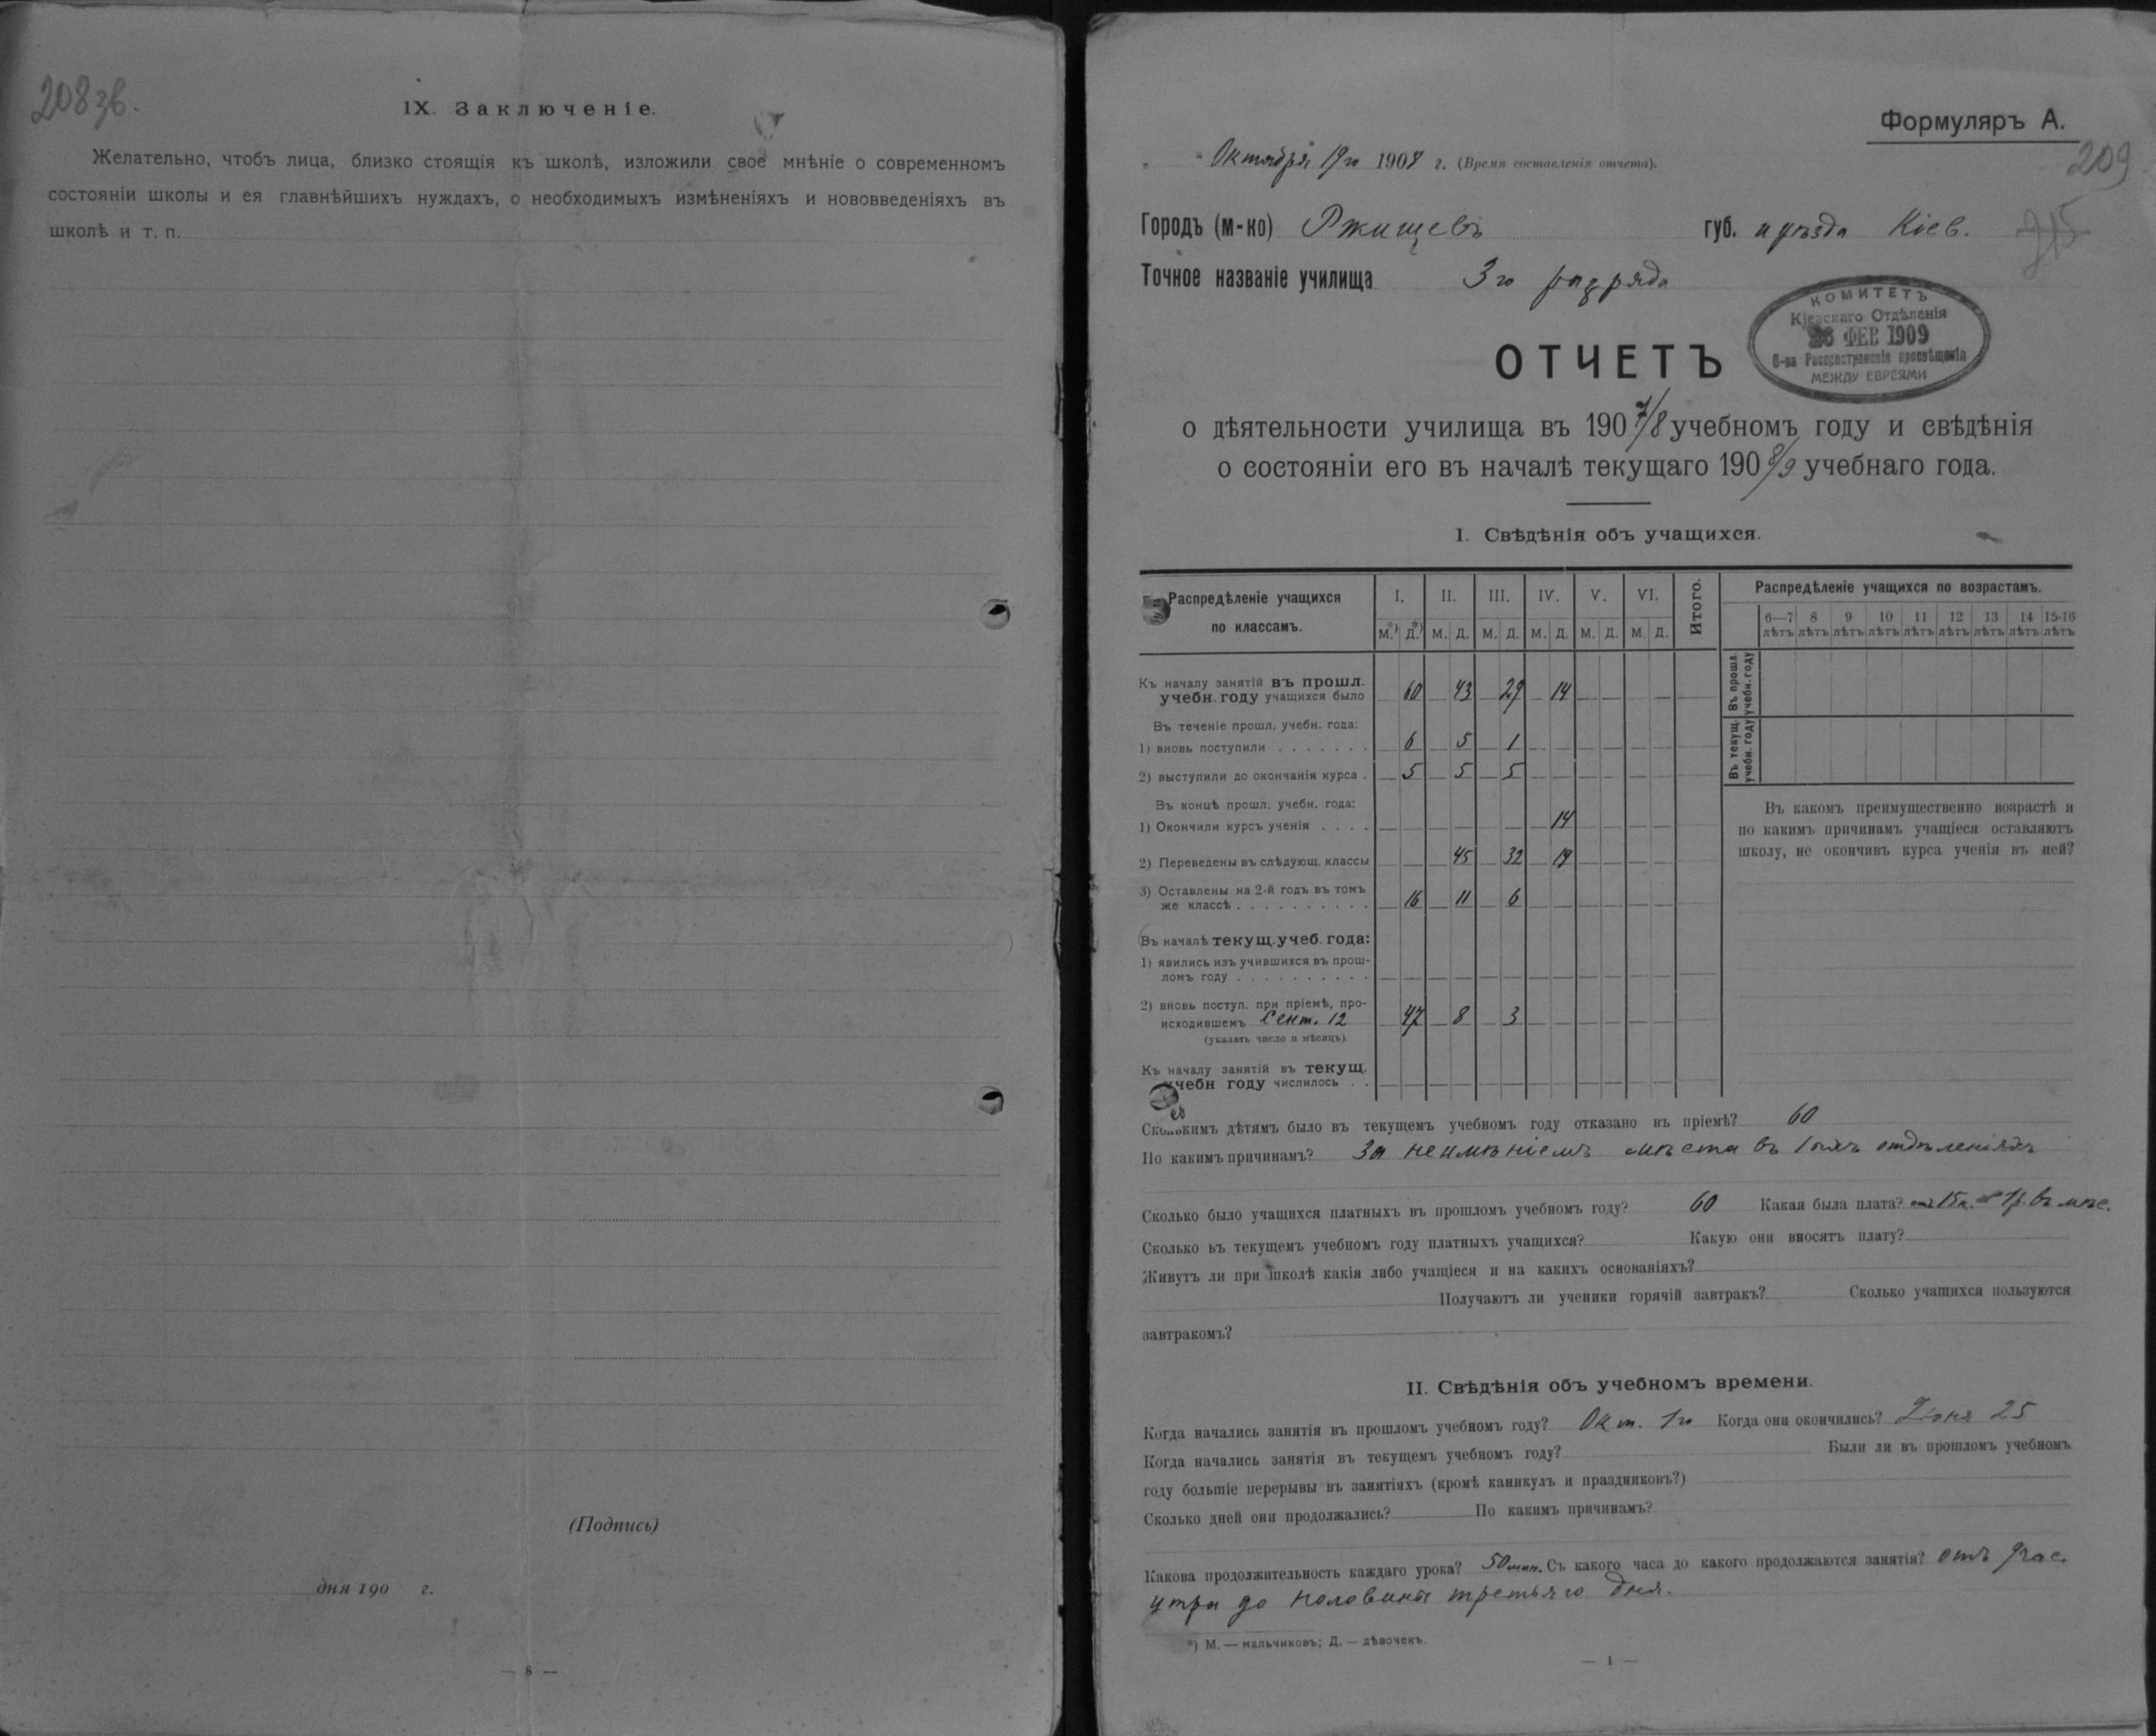 208 зв.
IX. Заключеніе.
Желательно, чтобъ лица, близко стоящія къ школѣ, изложили свое мнѣніе о современномъ
состояніи школы и ея главнѣйшихъ нуждахъ, о необходимыхъ измѣненіяхъ и нововведеніяхъ въ
школѣ и т. п.
(Подпись)
дня 190 г.
— 8 —
Формуляръ А.
209
215
„ “ Октября 19го 1908 г. (Время составленія отчета).
Городъ (м-ко) Ржищевъ губ. и уѣзда Кіев.
Точное названіе училища 3го разряда
КОМИТЕТЪ
Кіевскаго Отдѣленія
26 ФЕВ 1909
О-ва Распространенія просвѣщенія
МЕЖДУ ЕВРЕЯМИ
ОТЧЕТЪ
о дѣятельности училища въ 1907/8 учебномъ году и свѣдѣнія
о состояніи его въ началѣ текущаго 1908/9 учебнаго года.
I. Свѣдѣнія объ учащихся.
Распредѣленіе учащихся по классамъ. I. II. III. IV. V. VI. Итого.
м.*) д.*) м. д. м. д. м. д. м. д. м. д.
Къ началу занятій въ прошл.
учебн. году учащихся было 60 — 43 — 29 — 14 — — — —
Въ теченіе прошл. учебн. года:
1) вновь поступили . . . . . . . — 6 — 5 — 1 — — — — — — —
2) выступили до окончанія курса . — 5 — 5 — 5 — — — — — — —
Въ концѣ прошл. учебн. года:
1) Окончили курсъ ученія . . . . — — — — — 14 — — — — —
2) Переведены въ слѣдующ. классы — — — 45 — 32 — 19 — — — — —
3) Оставлены на 2-й годъ въ томъ
же классѣ . . . . . . . . . . — 16 — 11 — 6 — — — — — — —
Въ началѣ текущ. учеб. года:
1) явились изъ учившихся въ прош-
ломъ году . . . . . . . . . . — — — — — — — — — — — — —
2) вновь поступ. при пріемѣ, про-
исходившемъ Сент. 12 — 47 — 8 — 3 — — — — — — —
(указать число и мѣсяцъ).
Къ началу занятій въ текущ.
учебн году числилось . . — — — — — — — — — — — — —
Распредѣленіе учащихся по возрастамъ.
6—7 лѣтъ 8 лѣтъ 9 лѣтъ 10 лѣтъ 11 лѣтъ 12 лѣтъ 13 лѣтъ 14 лѣтъ 15-16 лѣтъ
Въ прошл. учебн. году
Въ текущ. учебн. году
Въ какомъ преимущественно возрастѣ и
по какимъ причинамъ учащіеся оставляютъ
школу, не окончивъ курса ученія въ ней?
Сколькимъ дѣтямъ было въ текущемъ учебномъ году отказано въ пріемѣ? 60
По какимъ причинамъ? За неимѣніемъ мѣста въ 1ыхъ отдѣленіяхъ
Сколько было учащихся платныхъ въ прошломъ учебномъ году? 60 Какая была плата? отъ 15к. до 1р. въ мѣс.
Сколько въ текущемъ учебномъ году платныхъ учащихся? Какую они вносятъ плату?
Живутъ ли при школѣ какія либо учащіеся и на какихъ основаніяхъ?
Получаютъ ли ученики горячій завтракъ? Сколько учащихся пользуются
завтракомъ?
II. Свѣдѣнія объ учебномъ времени.
Когда начались занятія въ прошломъ учебномъ году? Окт. 1го Когда они окончились? Іюня 25
Когда начались занятія въ текущемъ учебномъ году? Были ли въ прошломъ учебномъ
году большіе перерывы въ занятіяхъ (кромѣ каникулъ и праздниковъ?)
Сколько дней они продолжались? По какимъ причинамъ?
Какова продолжительность каждаго урока? 50 мин. Съ какого часа до какого продолжаются занятія? отъ 9 час.
утра до половины третьяго дня.
*) М. — мальчиковъ; Д. — дѣвочекъ.
— 1 —